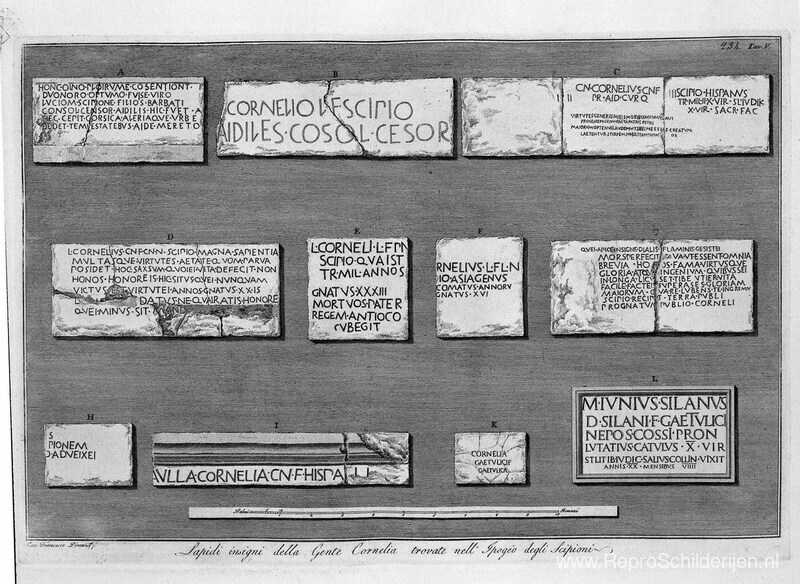 234 Tav. V.
A
HONC OINO PLOIRVME COSENTIONT
DVONORO OPTVMO FVISE VIRO
LVCIOM SCIPIONE FILIOS BARBATI
CONSOL CENSOR AIDILIS HIC FVET A
HEC CEPIT CORSICA ALERIAQVE VRBE
DEDET TEMPESTATEBVS AIDE MERETO
B
CORNELIO L F SCIPIO
AIDILES COSOL CESOR
C
CN CORNELIVS CN F
PR AID CVR Q
SCIPIO HISPANVS
TR MIL II X VIR SL IVDIK
X VIR SACR FAC
D
L CORNELIVS CN F CN N SCIPIO MAGNA SAPIENTIA
MVLTASQVE VIRTVTES AETATE QVOM PARVA
POSIDET HOC SAXSVM QVOIEI VITA DEFECIT NON
HONOS HONORE IS HIC SITVS QVEI NVNQVAM
VICTVS EST VIRTVTEI ANNOS GNATVS XX IS
DATVS NE QVAIRATIS HONORE
QVEI MINVS SIT MAND
E
L CORNELI L F P N
SCIPIO QVAIST
TR MIL ANNOS
GNATVS XXXIII
MORTVOS PATER
REGEM ANTIOCO
CVBEGIT
F
RNELIVS L F L N
IO ASIAGENVS
COMATVS ANNORV
GNATVS XVI
QVEI APICE INSIGNE DIALIS FLAMINIS GESISTEI
MORS PERFECIT VA VT ESSENT OMNIA
BREVIA HONOS FAMA VIRTVSQVE
GLORIA ATQVE INGENIVM QVIBVS SEI
IN LONGA LICVISET TIBE VTIER VITA
FACILE FACTEIS SVPERASES GLORIAM
MAIORVM QVARE LVBENS TE IN GREMIV
SCIPIO RECIPIT TERRA PVBLI
PROGNATVM PVBLIO CORNELI
H
S
PIONEM
O ADVEIXEI
I
AVLLA CORNELIA CN F HISPALLI
K
CORNELIA
GAETVLICI F
GAETVLICA
L
M IVNIVS SILANVS
D SILANI F GAETVLICI
NEPOS COSSI PRON
LVTATIVS CATVLVS X VIR
STLITIB IVDIC SALIVS COLLIN VIXIT
ANNIS XX MENSIBVS VIIII
Romani
Cav. Francesco Piranesi F.
Lapidi insigni della Gente Cornelia trovate nell' Ipogèo degli Scipioni
www.ReproSchilderijen.nl